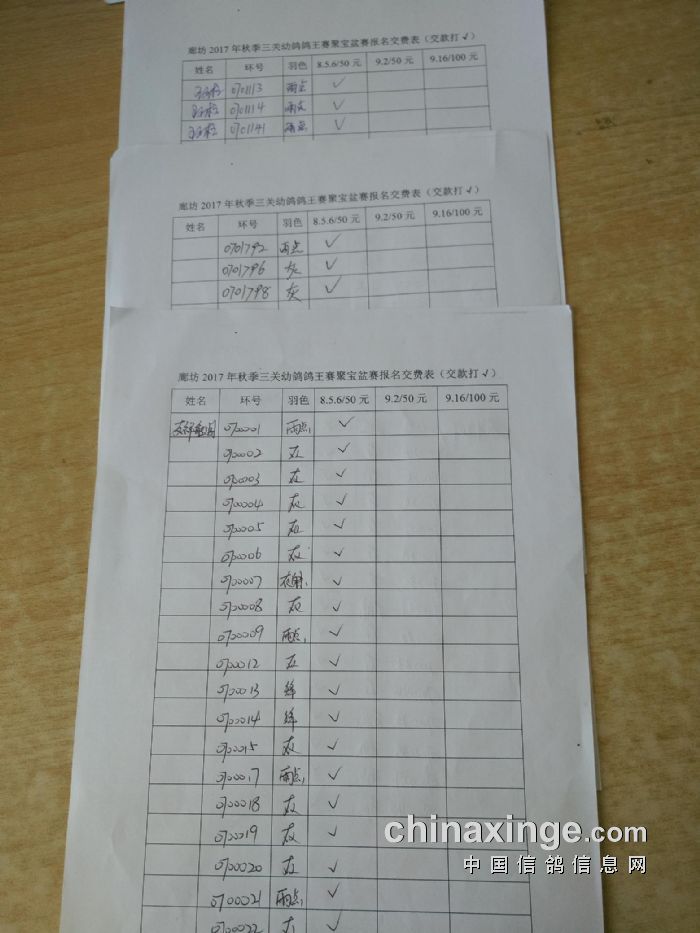 廊坊 2017 年秋季三关幼鸽鸽王赛聚宝盆赛报名交费表（交款打 √）
姓名 环号 羽色 8.5.6/50 元 9.2/50 元 9.16/100 元
0701113 雨点 ✓
0701114 雨点 ✓
0701141 雨点 ✓
廊坊 2017 年秋季三关幼鸽鸽王赛聚宝盆赛报名交费表（交款打 √）
姓名 环号 羽色 8.5.6/50 元 9.2/50 元 9.16/100 元
0701792 雨点 ✓
0701796 灰 ✓
0701798 灰 ✓
廊坊 2017 年秋季三关幼鸽鸽王赛聚宝盆赛报名交费表（交款打 √）
姓名 环号 羽色 8.5.6/50 元 9.2/50 元 9.16/100 元
0700001 雨点 ✓
0700002 灰 ✓
0700003 灰 ✓
0700004 灰 ✓
0700005 灰 ✓
0700006 灰 ✓
0700007 ✓
0700008 灰 ✓
0700009 雨点 ✓
0700012 灰 ✓
0700013 绛 ✓
0700014 绛 ✓
0700015 灰 ✓
0700017 雨点 ✓
0700018 灰 ✓
0700019 灰 ✓
0700020 灰 ✓
0700021 雨点 ✓
0700022 灰 ✓
chinaxinge.com
中国信鸽信息网